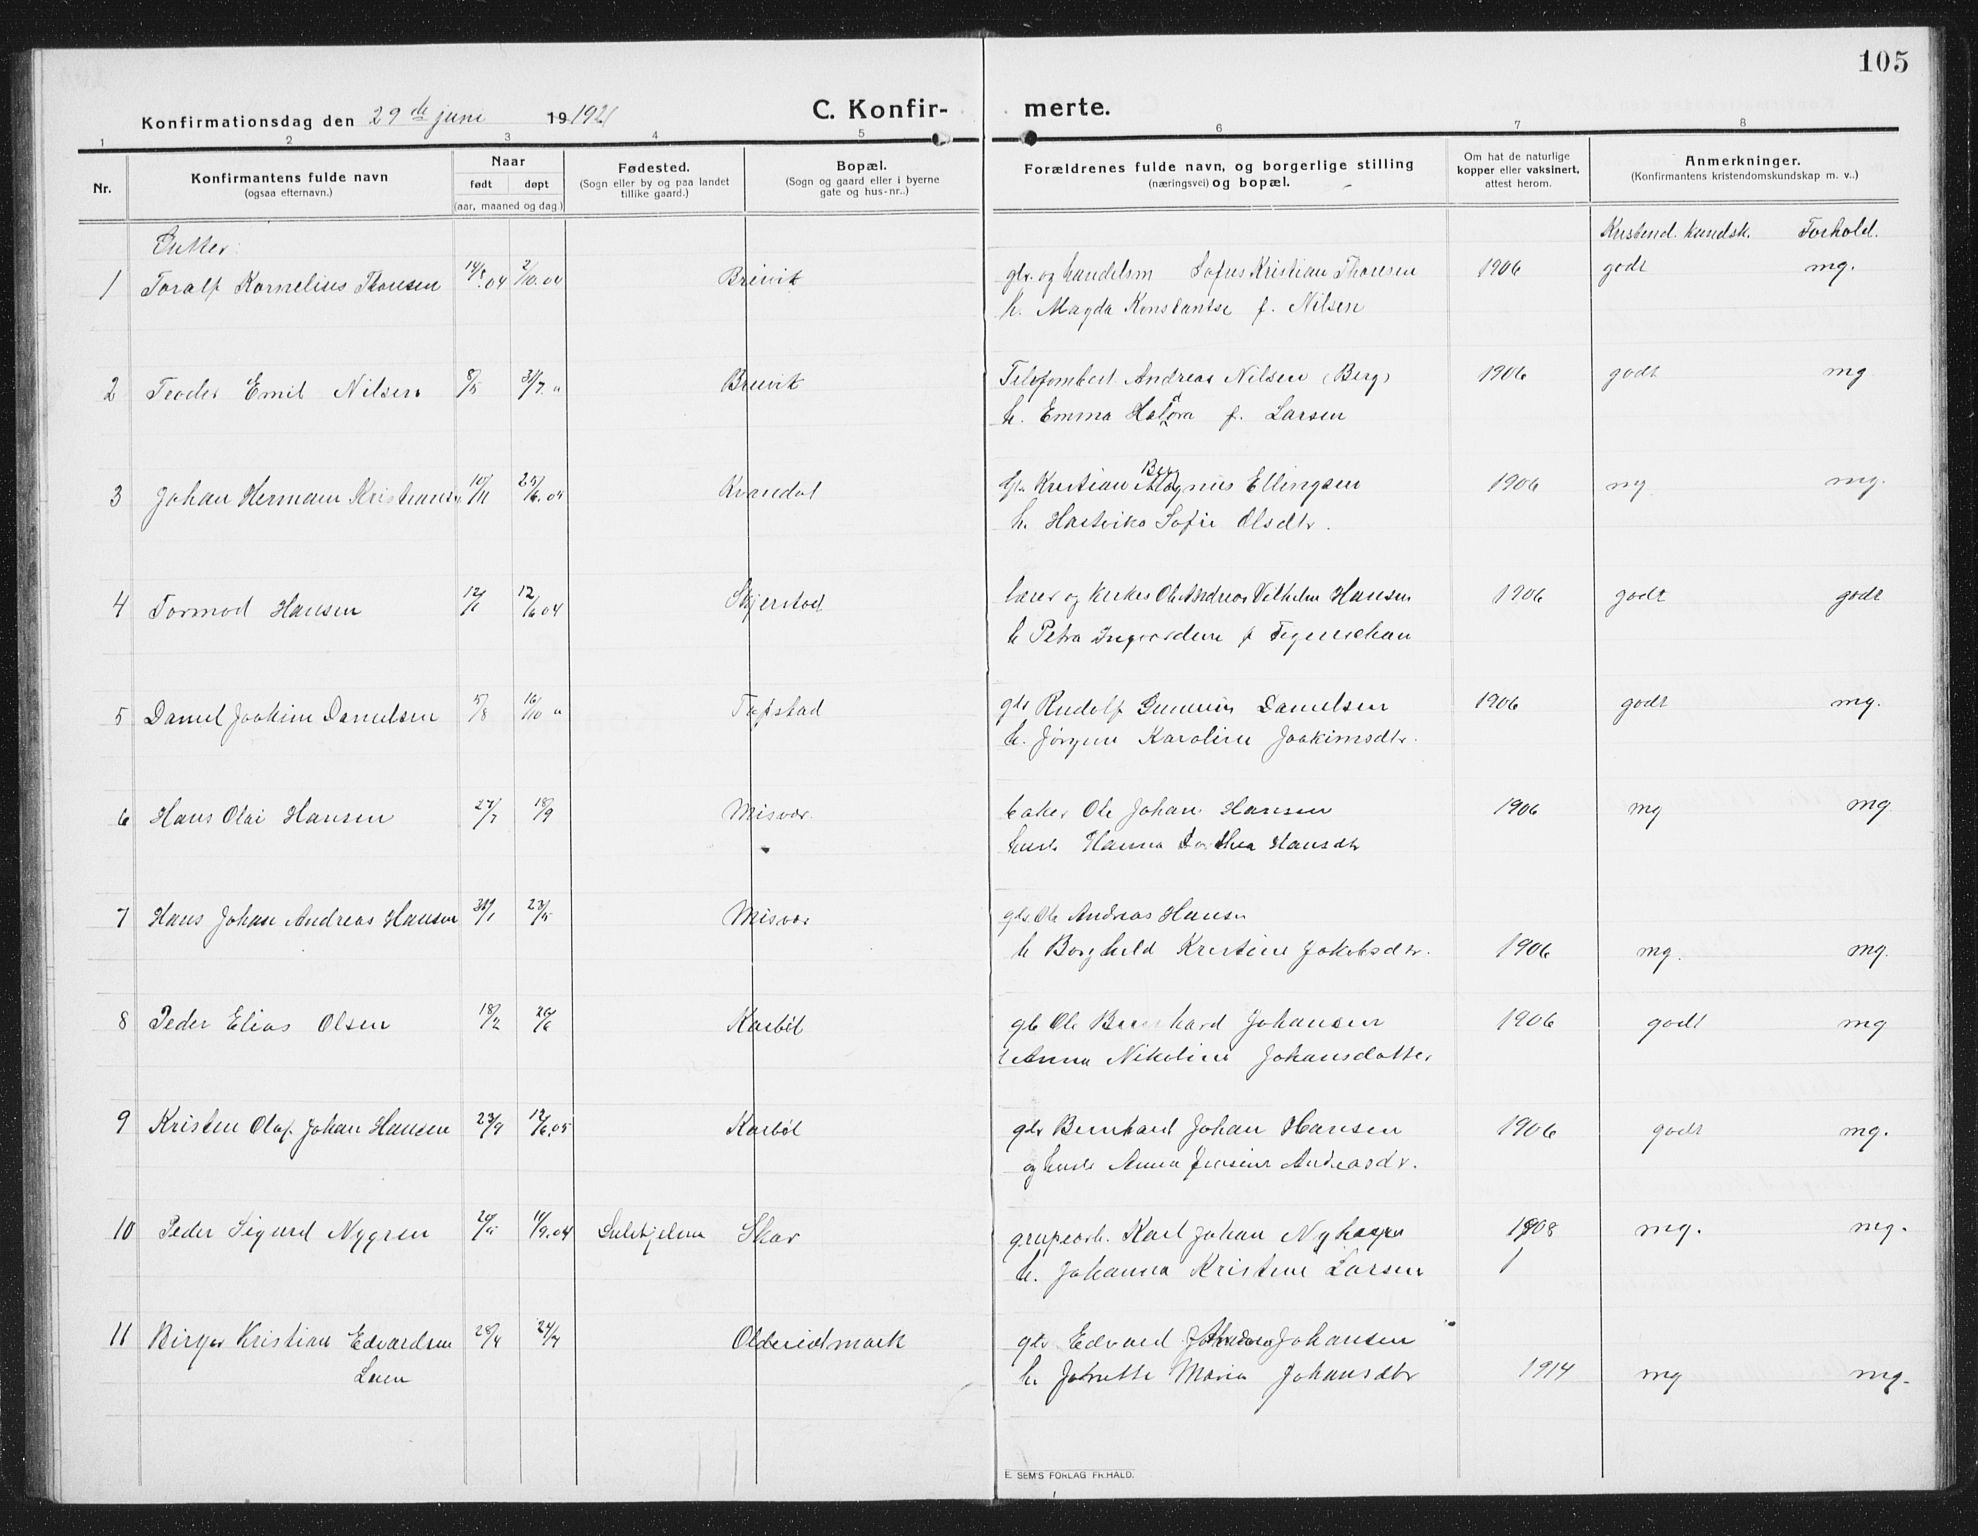 105
Konfirmationsdag den 29de juni 19 1921
C. Konfir- merte.
1 2 3 4 5 6 7 8
Nr.
Konfirmantens fulde navn
(ogsaa efternavn.)
Naar
født døpt
(aar, maaned og dag.)
Fødested.
(Sogn eller by og paa landet
tillike gaard.)
Bopæl.
(Sogn og gaard eller i byerne
gate og hus-nr..)
Forældrenes fulde navn, og borgerlige stilling
(næringsvei) og bopæl.
Om hat de naturlige
kopper eller vaksinert,
attest herom.
Anmerkninger.
(Konfirmantens kristendomskundskap m. v..)
Gutter: Kristend. kundsk. Forhold.
1 Toralf Kornelius Thoresen 04 2/10.04 Breivik gbr. og handelsm Sofus Kristian Thoresen 1906 godt mg.
h. Magda Konstantse f. Nilsen
2 Teodor Emil Nilsen 8/5 31/7. " Breivik Andreas Nilsen (Berg) 1906 godt mg
h. Emma Haldora f. Larsen
3 Johan Hermann Kristiansen 10/11 25/6.05 Kvandal Gbr Kristian Berg Magnus Ellingsen 1906 mg mg.
h. Hartvika Sofie Olsdtr.
4 Tormod Hansen 12/1 12/6 04 Skjerstad lærer og kirkes Ole Andreas Vilhelm Hansen 1906 godt godt
h Petra f
5 Daniel Joakim Danielsen 15/8 16/10 " Tofstad gbr Rudolf Danielsen 1906 godt mg.
h. Jørgine Karoline Joakimsdtr.
6 Hans Olai Hansen 27/7 18/9 Misvær baker Ole Johan Hansen 1906 mg mg.
hustr Hanna Dorthea Hansdtr
7 Hans Johan Andreas Hansen 31/1 23/5 Misvær gbr. Ole Andreas Hansen
h Borghild Kristine Jakobsdtr. 1906 mg. mg.
8 Peder Elias Olsen 18/2 26/6 Karbøl gb Ole Bernhard Johansen 1906 godt mg
Anna Nikoline Johansdatter
9 Kristen Olaf Johan Hansen 23/9 12/6.05 Karbøl gbr Bernhard Johan Hansen 1906 godt mg.
og hustr Anna Jensine Andreasdr.
10 Peder Sigurd Nygren 11/9.04 Sulitjelma Skar grupearb. Karl Johan 1908 mg. mg.
h. Johanna Kristine Larsen 1
11 Birger Kristian Edvardsen 28/4 24/7 Oldereidmark gbr Edvard Johansen
Løen h. Maria Johansdtr 1914 mg mg.
E. SEM'S FORLAG FR.HALD.